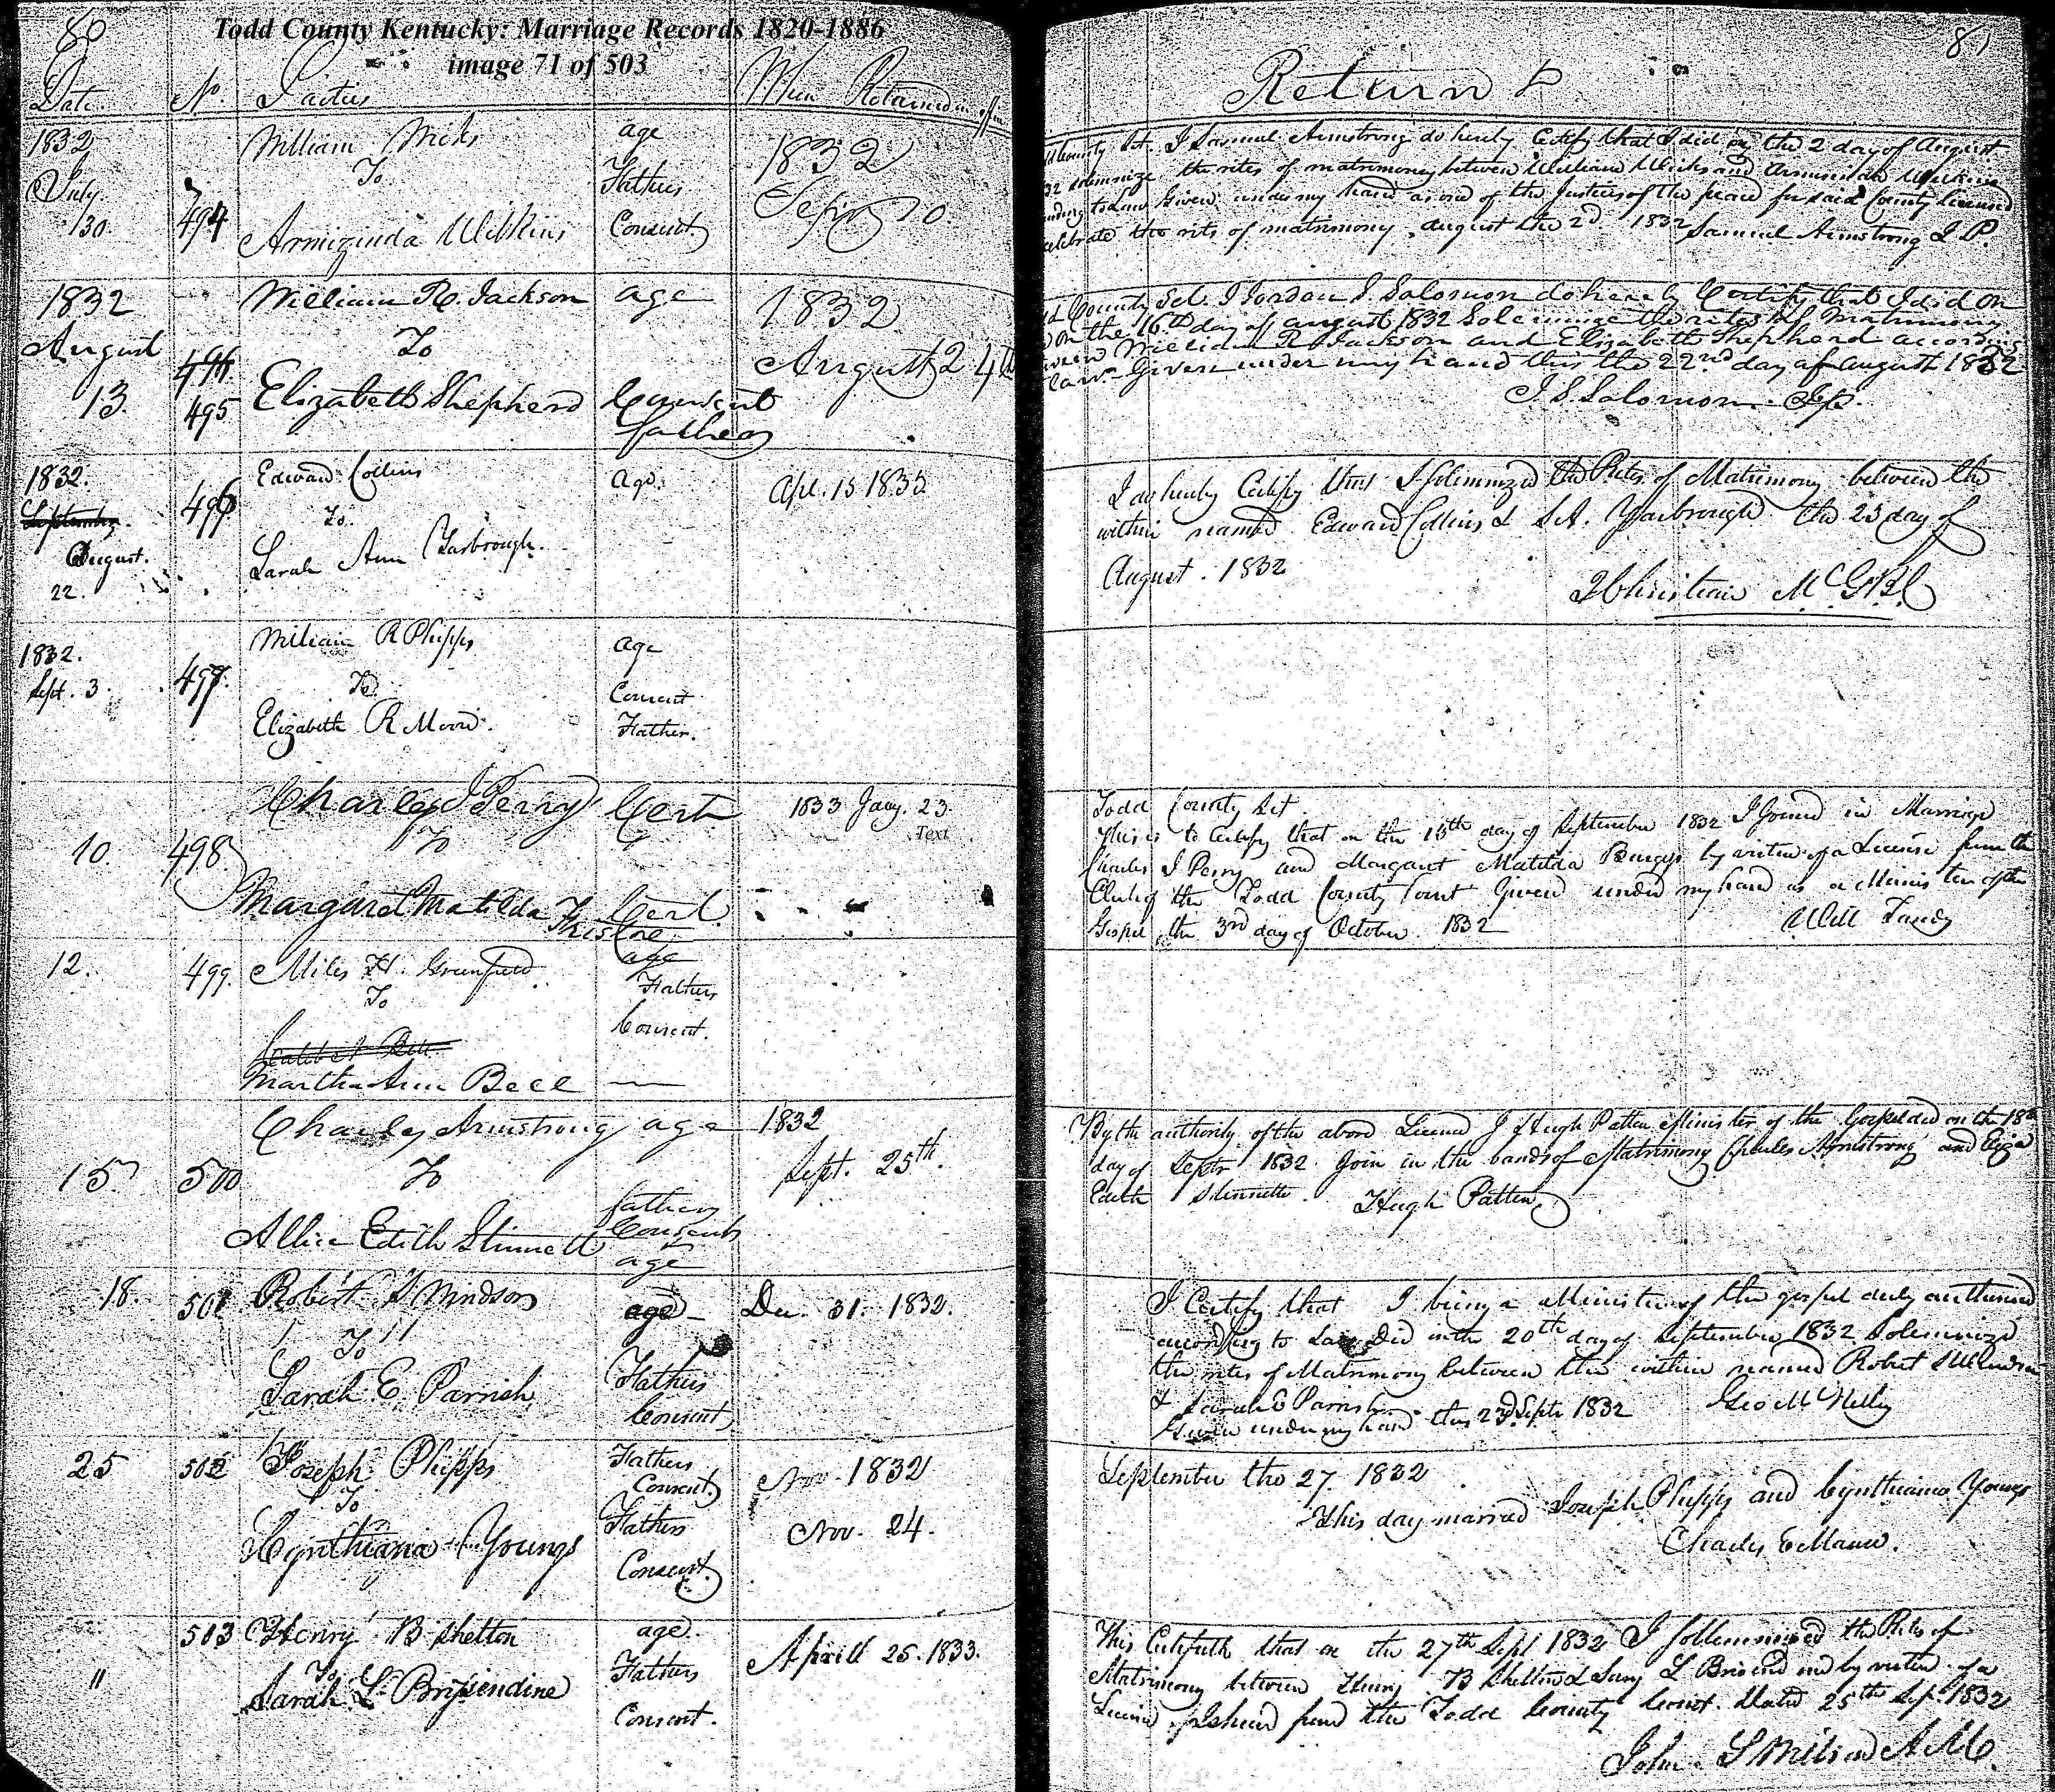 80
Todd County Kentucky: Marriage Records 1820-1886
image 71 of 503
Date. No. Parties When Returned
1832
July
30.
494
William Wicks
To
Armizinda Wilkins
age
Fathers
Consent
1832
Sept 10
1832
August
13.
495
William R. Jackson
To
Elizabeth Shepherd
age
Consent
father
1832
August 24th
1832.
September.
August.
22.
496
Edward Collins
To.
Sarah Ann Yarbrough.
age.
Apl. 15 1833
1832.
Sept. 3.
497.
William R Phipps
To
Elizabeth R Moore.
age
Consent
Father.
10.
498
Charles J Perry
To
Margaret Matilda
Cert
Cert
1833 Jany. 23
Text
12.
499.
Miles H. Greenfield
To
Martha Ann Bell
age
Fathers
Consent.
15
500
Charles Armstrong
To
Allice Edith Stinnett
age
fathers
Consent
age
1832
Sept. 25th.
18.
501
Robert S Windsor
To
Sarah E Parrish
age
Fathers
Consent
Dec. 31. 1832.
25
502
Joseph Phipps
To
Cynthiana Youngs
Fathers
Consent
Fathers
Consent
Nov. 1832
Nov. 24.
"
503
Henry B Shelton
To
Sarah L. Brisendine
age.
Fathers
Consent.
Aprill 25. 1833.
81
Returns
County Sct. I Samuel Armstrong do hereby Certify that I did on the 2 day of August
solemnize the rites of matrimony between William Wicks and Armisinda Wilkins
to Law Given under my hand as one of the Justices of the peace for said County licensed
celebrate the rits of matrimony. August the 2d. 1832 Samuel Armstrong J. P.
County Sct. I Jordan S. Solomon do hereby Certify that I did on
on the 16th day of august 1832 Solemnize the rites of Matrimony
William R Jackson and Elizabeth Shepherd according
law. Given under my hand this the 22nd. day of august 1832
J. S. Solomon. Jp.
I do hereby Certify that I solemnized the Rites of Matrimony between the
within named Edward Collins & S. A. Yarbrough the 23 day of
August. 1832
Todd County Sct
This is to Certify that on the 13th day of September 1832 I Joined in Marriage
Charles J Perry and Margaret Matilda by virtue of a License from the
Clerk of the Todd County Court Given under my hand as a Minister of the
Gospel, the 3rd day of October. 1832 Will Tandy
By the authority of the above License I Hugh Patten Minister of the Gospel did on the 18th
day of Septr 1832. Join in the bands of Matrimony Charles Armstrong and
Edith Stinnette. Hugh Patten
I Certify that I being a Minister of the gospel duly authorised
according to Law Did on the 20th day of September 1832 Solemnized
the rites of Matrimony between the within named Robert S Windsor
& Sarah E Parrish
Given under my hand this 23rd Septr 1832 Geo McNelly
September the 27. 1832
This day married Joseph Phipps and Cynthiana Youngs
Charles E Mann.
This Certifieth that on the 27th Sept 1832 I sollemnised the Rites of
Matrimony between Henry B Shelton & Sary L by virtue of a
License Ishued from the Todd County Court. Dated 25th Sep. 1832